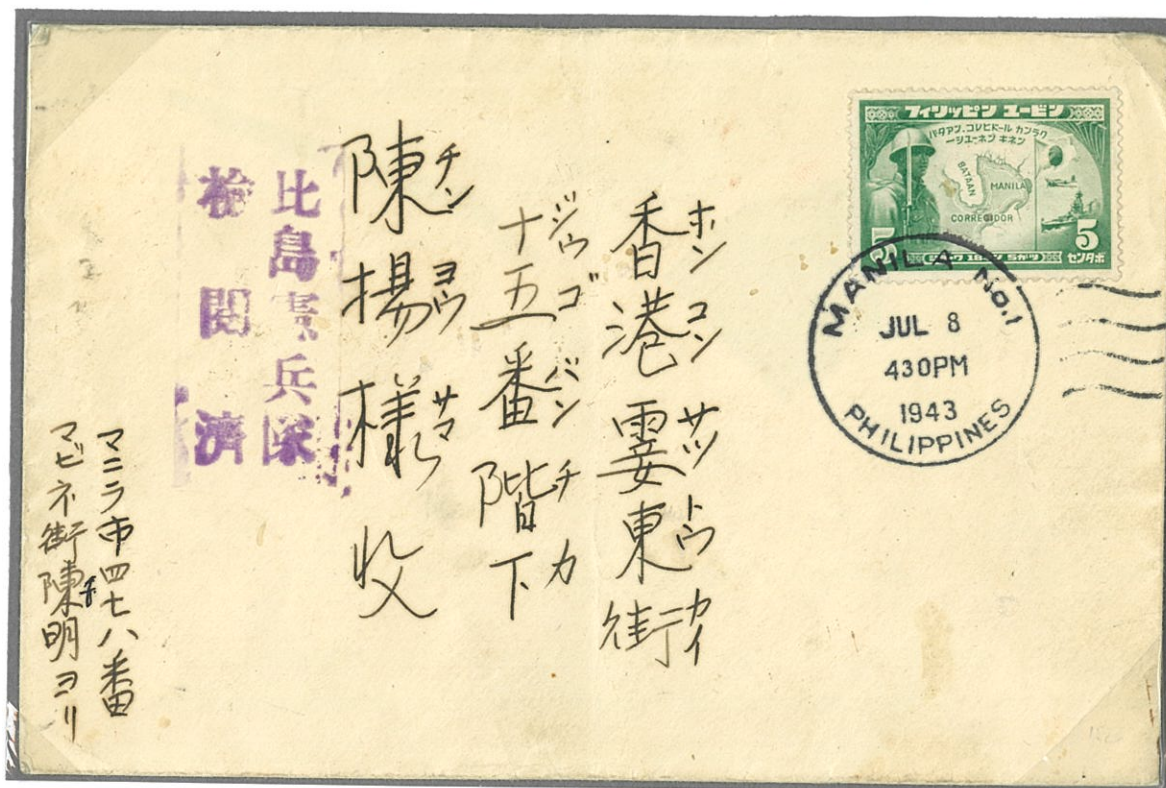 フィリッピン ユービン
バタアン.コレヒドール カンラク
一シューネン キネン
BATAAN
MANILA
CORREGIDOR
5
5
センタボ
MANILA No.1
JUL 8
430PM
1943
PHILIPPINES
香港霎東街
ホンコンサットウカイ
十五番階下
ジウゴバンチカ
陳揚様 收
チンヨウサマ
比島憲兵隊
検閲濟
マニラ市四七八番
マビネ街陳明ヨリ